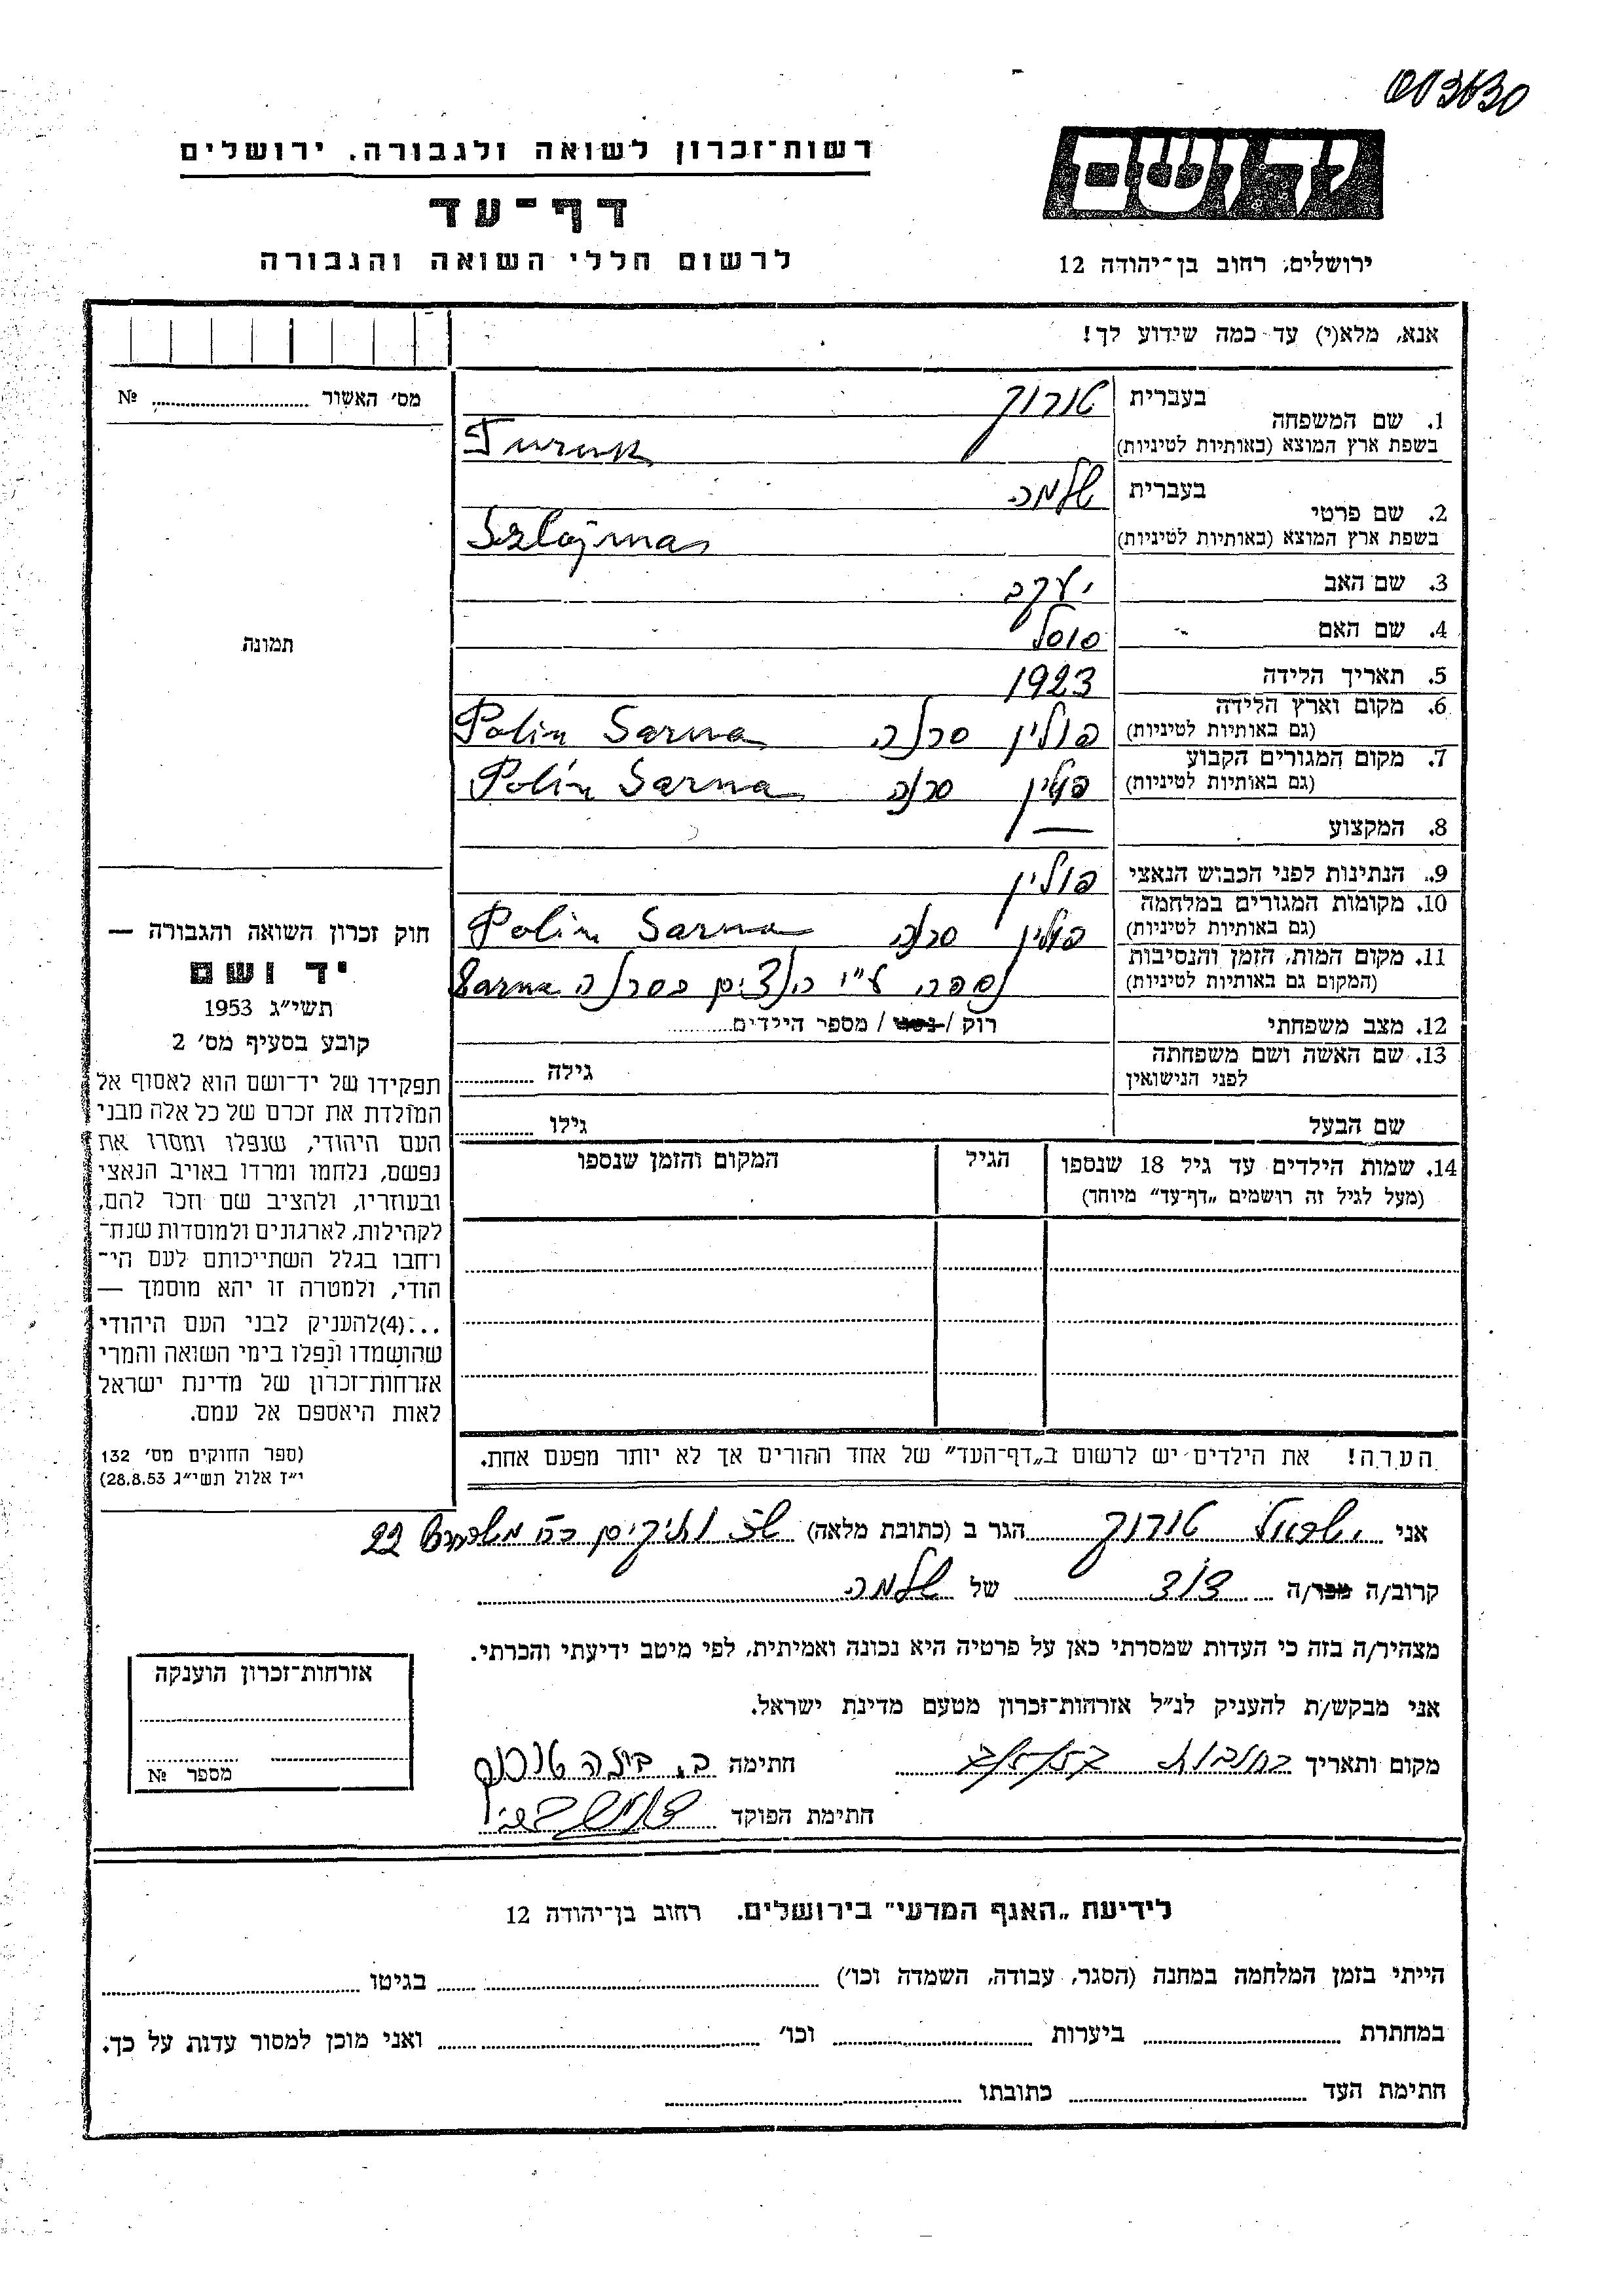 013630
רשות־זכרון לשואה ולגבורה. ירושלים
ידושם
דף־עד
לרשום חללי השואה והגבורה
ירושלים, רחוב בן־יהודה 12
אנא, מלא(י) עד כמה שידוע לך!
מס' האשור № 
1. שם המשפחה
בעברית טורוק
בשפת ארץ המוצא (באותיות לטיניות) Turuk
2. שם פרטי
בעברית שלמה
בשפת ארץ המוצא (באותיות לטיניות) Szlojma
3. שם האב יעקב
4. שם האם
תמונה
5. תאריך הלידה 1923
6. מקום וארץ הלידה
(גם באותיות לטיניות) פולין סרנה Polin Sarna
7. מקום המגורים הקבוע
(גם באותיות לטיניות) פולין סרנה Polin Sarna
8. המקצוע —
9. הנתינות לפני הכבוש הנאצי פולין
10. מקומות המגורים במלחמה
(גם באותיות לטיניות) פולין סרנה Polin Sarna
11. מקום המות, הזמן והנסיבות
(המקום גם באותיות לטיניות) נספה ע"י בסרנה Sarna
12. מצב משפחתי רוק / נשוי / מספר הילדים
13. שם האשה ושם משפחתה
לפני הנישואין גילה
שם הבעל גילו
14. שמות הילדים עד גיל 18 שנספו
(מעל לגיל זה רושמים „דף־עד" מיוחד)
הגיל
המקום והזמן שנספו
חוק זכרון השואה והגבורה —
יד ושם
תשי"ג 1953
קובע בסעיף מס' 2
תפקידו של יד־ושם הוא לאסוף אל
המולדת את זכרם של כל אלה מבני
העם היהודי, שנפלו ומסרו את
נפשם, נלחמו ומרדו באויב הנאצי
ובעוזריו, ולהציב שם וזכר להם,
לקהילות, לארגונים ולמוסדות שנח־
רחבו בגלל השתייכותם לעם הי־
הודי, ולמטרה זו יהא מוסמך —
...(4)להעניק לבני העם היהודי
שהושמדו ונפלו בימי השואה והמרי
אזרחות־זכרון של מדינת ישראל
לאות היאספם אל עמם.
(ספר החוקים מס' 132
י"ז אלול תשי"ג 28.8.53)
הערה! את הילדים יש לרשום ב„דף־העד" של אחד ההורים אך לא יותר מפעם אחת.
אני טורוק הגר ב (כתובת מלאה) 22
קרוב/ה מכר/ה דוד של שלמה
מצהיר/ה בזה כי העדות שמסרתי כאן על פרטיה היא נכונה ואמיתית, לפי מיטב ידיעתי והכרתי.
אני מבקש/ת להעניק לנ"ל אזרחות־זכרון מטעם מדינת ישראל.
מקום ותאריך רחובות חתימה
חתימת הפוקד
אזרחות־זכרון הוענקה
מספר №
לידיעת „האגף המדעי" בירושלים. רחוב בן־יהודה 12
הייתי בזמן המלחמה במחנה (הסגר, עבודה, השמדה וכו') בגיטו
במחתרת ביערות וכו' ואני מוכן למסור עדות על כך.
חתימת העד כתובתו